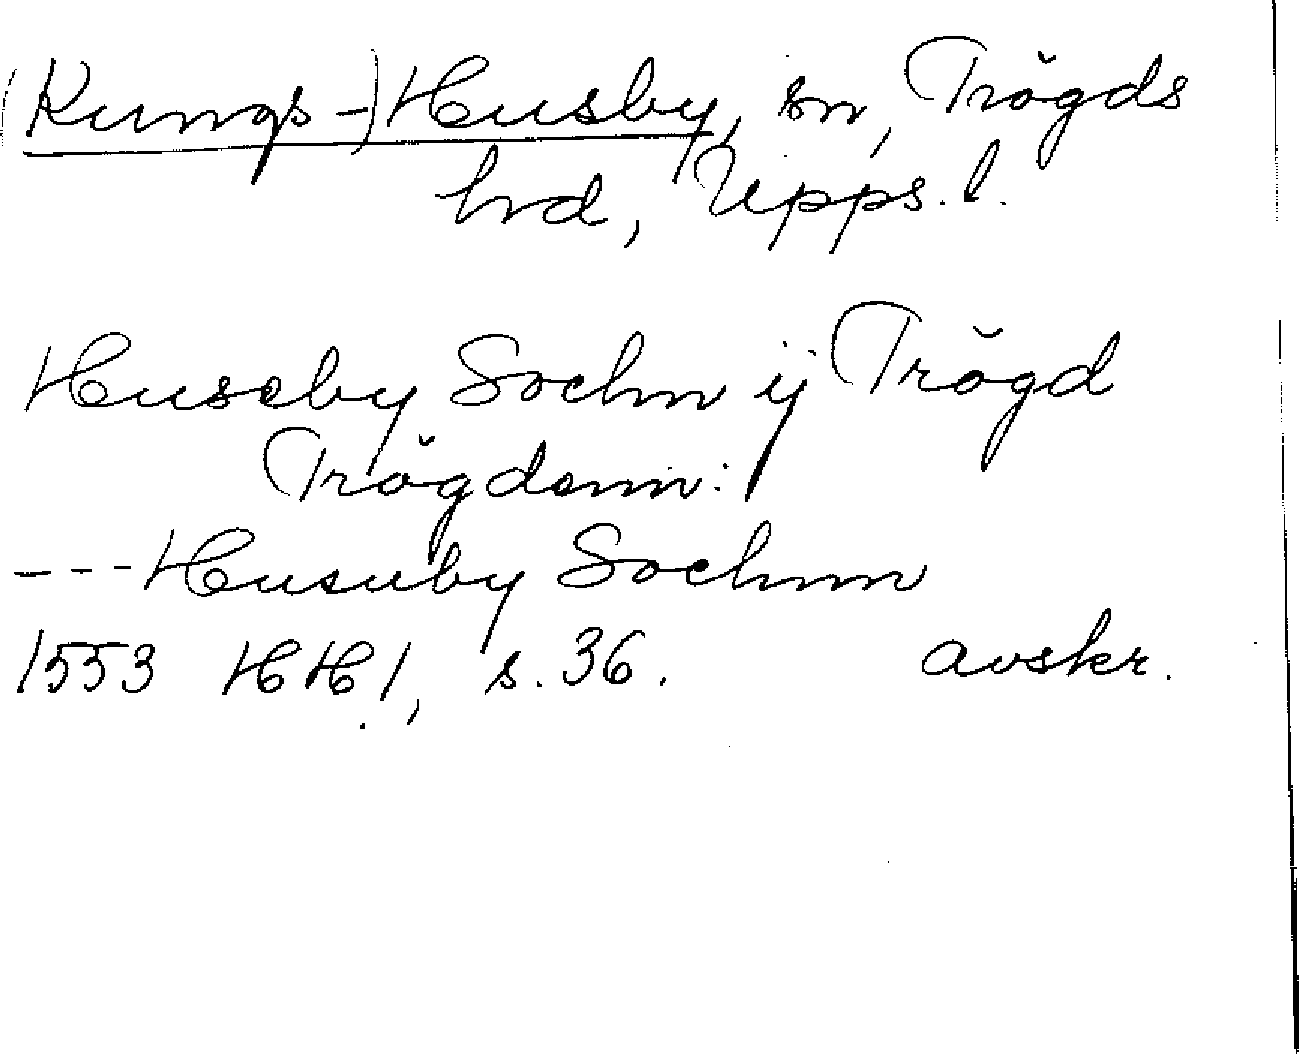 (Kungs-)Husby, sn, Trögds
hrd, Upps. l.
Huseby Sochn ij Trögd
Trögdenn:
---Husuby Sochnn
1553 HH 1, s. 36. avskr.